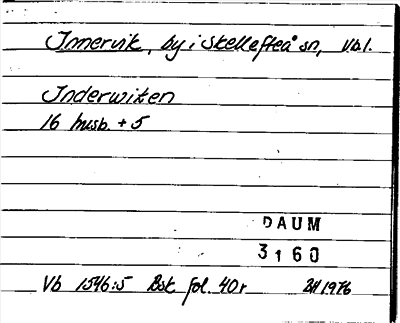 Innervik, by i Skellefteå sn, Vbl.
Inderwiken
16 husb. + 5
DAUM
3160
Vb 1546:5 Bsk fol. 40r 1976